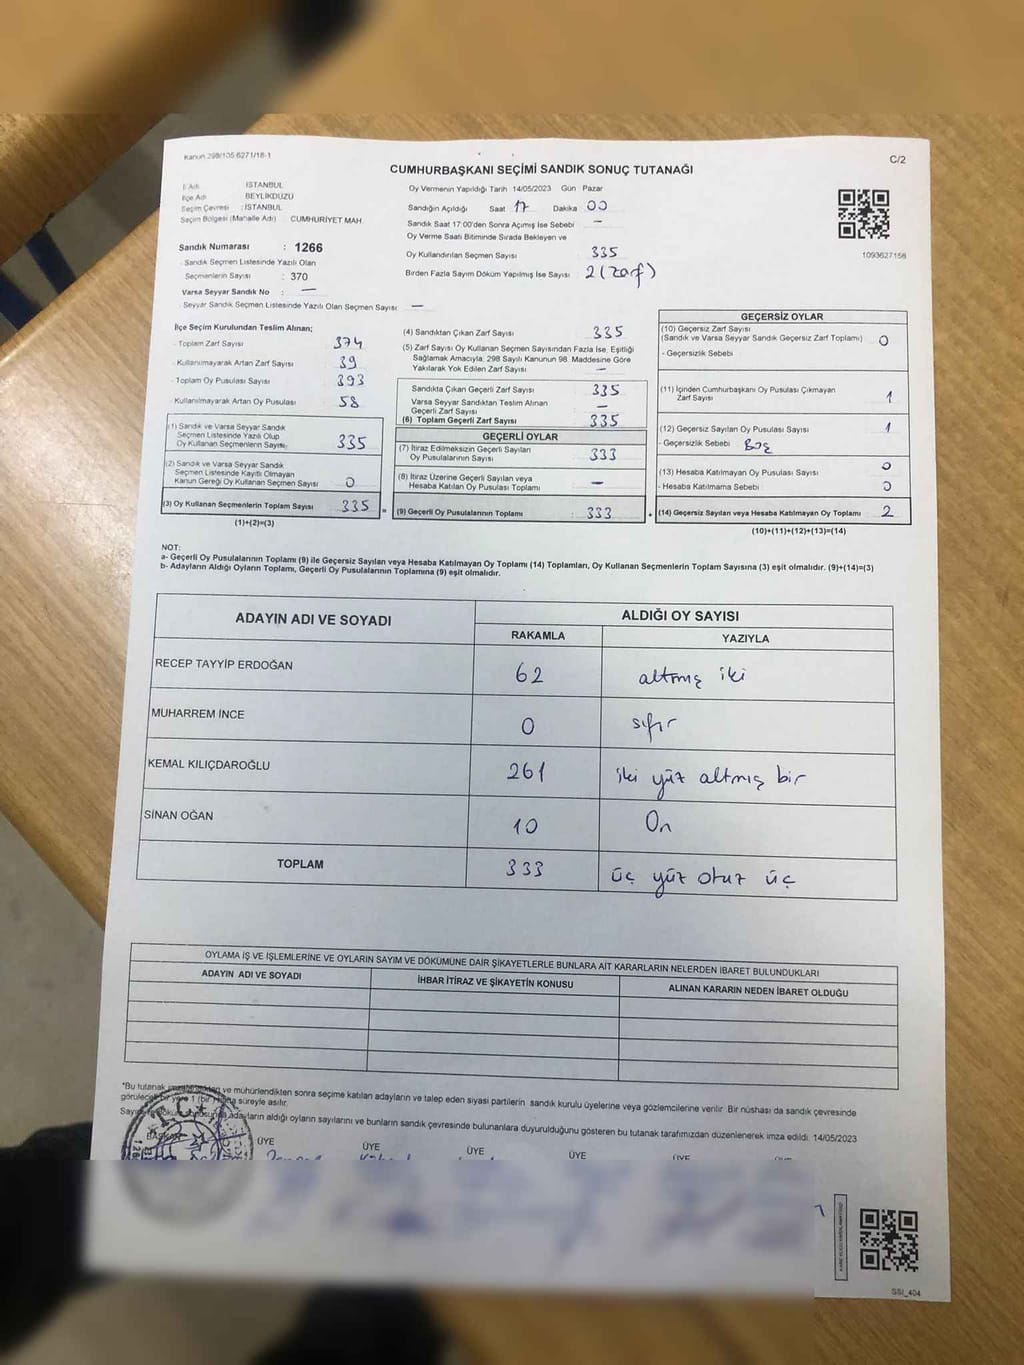 Kanun 298/105 6271/18-1
C/2
CUMHURBAŞKANI SEÇİMİ SANDIK SONUÇ TUTANAĞI
İl Adı İSTANBUL
İlçe Adı BEYLİKDÜZÜ
Seçim Çevresi : İSTANBUL
Seçim Bölgesi (Mahalle Adı) CUMHURİYET MAH.
Sandık Numarası : 1266
- Sandık Seçmen Listesinde Yazılı Olan
Seçmenlerin Sayısı : 370
Varsa Seyyar Sandık No : —
- Seyyar Sandık Seçmen Listesinde Yazılı Olan Seçmen Sayısı : —
Oy Vermenin Yapıldığı Tarih 14/05/2023 Gün Pazar
Sandığın Açıldığı Saat 17 Dakika 00
Sandık Saat 17:00'den Sonra Açımış İse Sebebi —
Oy Verme Saati Bitiminde Sırada Bekleyen ve
Oy Kullandırılan Seçmen Sayısı 335
Birden Fazla Sayım Döküm Yapılmış İse Sayısı 2 (zarf)
1093627156
İlçe Seçim Kurulundan Teslim Alınan;
- Toplam Zarf Sayısı 374
- Kullanılmayarak Artan Zarf Sayısı 39
- Toplam Oy Pusulası Sayısı 393
- Kullanılmayarak Artan Oy Pusulası 58
(1) Sandık ve Varsa Seyyar Sandık
Seçmen Listesinde Yazılı Olup
Oy Kullanan Seçmenlerin Sayısı 335
(2) Sandık ve Varsa Seyyar Sandık
Seçmen Listesinde Kayıtlı Olmayan
Kanun Gereği Oy Kullanan Seçmen Sayısı 0
(3) Oy Kullanan Seçmenlerin Toplam Sayısı 335 =
(1)+(2)=(3)
(4) Sandıktan Çıkan Zarf Sayısı 335
(5) Zarf Sayısı Oy Kullanan Seçmen Sayısından Fazla İse, Eşitliği
Sağlamak Amacıyla, 298 Sayılı Kanunun 98. Maddesine Göre
Yakılarak Yok Edilen Zarf Sayısı —
Sandıkta Çıkan Geçerli Zarf Sayısı 335
Varsa Seyyar Sandıktan Teslim Alınan
Geçerli Zarf Sayısı —
(6) Toplam Geçerli Zarf Sayısı 335
GEÇERLİ OYLAR
(7) İtiraz Edilmeksizin Geçerli Sayılan
Oy Pusulalarının Sayısı 333
(8) İtiraz Üzerine Geçerli Sayılan veya
Hesaba Katılan Oy Pusulası Toplamı —
(9) Geçerli Oy Pusulalarının Toplamı : 333 +
GEÇERSİZ OYLAR
(10) Geçersiz Zarf Sayısı
(Sandık ve Varsa Seyyar Sandık Geçersiz Zarf Toplamı) 0
- Geçersizlik Sebebi
(11) İçinden Cumhurbaşkanı Oy Pusulası Çıkmayan
Zarf Sayısı 1
(12) Geçersiz Sayılan Oy Pusulası Sayısı 1
- Geçersizlik Sebebi Boş
(13) Hesaba Katılmayan Oy Pusulası Sayısı 0
- Hesaba Katılmama Sebebi 0
(14) Geçersiz Sayılan veya Hesaba Katılmayan Oy Toplamı 2
(10)+(11)+(12)+(13)=(14)
NOT:
a- Geçerli Oy Pusulalarının Toplamı (9) ile Geçersiz Sayılan veya Hesaba Katılmayan Oy Toplamı (14) Toplamları, Oy Kullanan Seçmenlerin Toplam Sayısına (3) eşit olmalıdır. (9)+(14)=(3)
b- Adayların Aldığı Oyların Toplamı, Geçerli Oy Pusulalarının Toplamına (9) eşit olmalıdır.
ADAYIN ADI VE SOYADI ALDIĞI OY SAYISI
RAKAMLA YAZIYLA
RECEP TAYYİP ERDOĞAN 62 altmış iki
MUHARREM İNCE 0 sıfır
KEMAL KILIÇDAROĞLU 261 iki yüz altmış bir
SİNAN OĞAN 10 On
TOPLAM 333 üç yüz otuz üç
OYLAMA İŞ VE İŞLEMLERİNE VE OYLARIN SAYIM VE DÖKÜMÜNE DAİR ŞİKAYETLERLE BUNLARA AİT KARARLARIN NELERDEN İBARET BULUNDUKLARI
ADAYIN ADI VE SOYADI İHBAR İTİRAZ VE ŞİKAYETİN KONUSU ALINAN KARARIN NEDEN İBARET OLDUĞU
*Bu tutanak ve mühürlendikten sonra seçime katılan adayların ve talep eden siyasi partilerin sandık kurulu üyelerine veya gözlemcilerine verilir. Bir nüshası da sandık çevresinde
görülecek bir yere 1 (bir) süreyle asılır.
adayların aldığı oyların sayılarını ve bunların sandık çevresinde bulunanlara duyurulduğunu gösteren bu tutanak tarafımızdan düzenlenerek imza edildi. 14/05/2023
BAŞKAN ÜYE ÜYE ÜYE ÜYE ÜYE
SSI_404